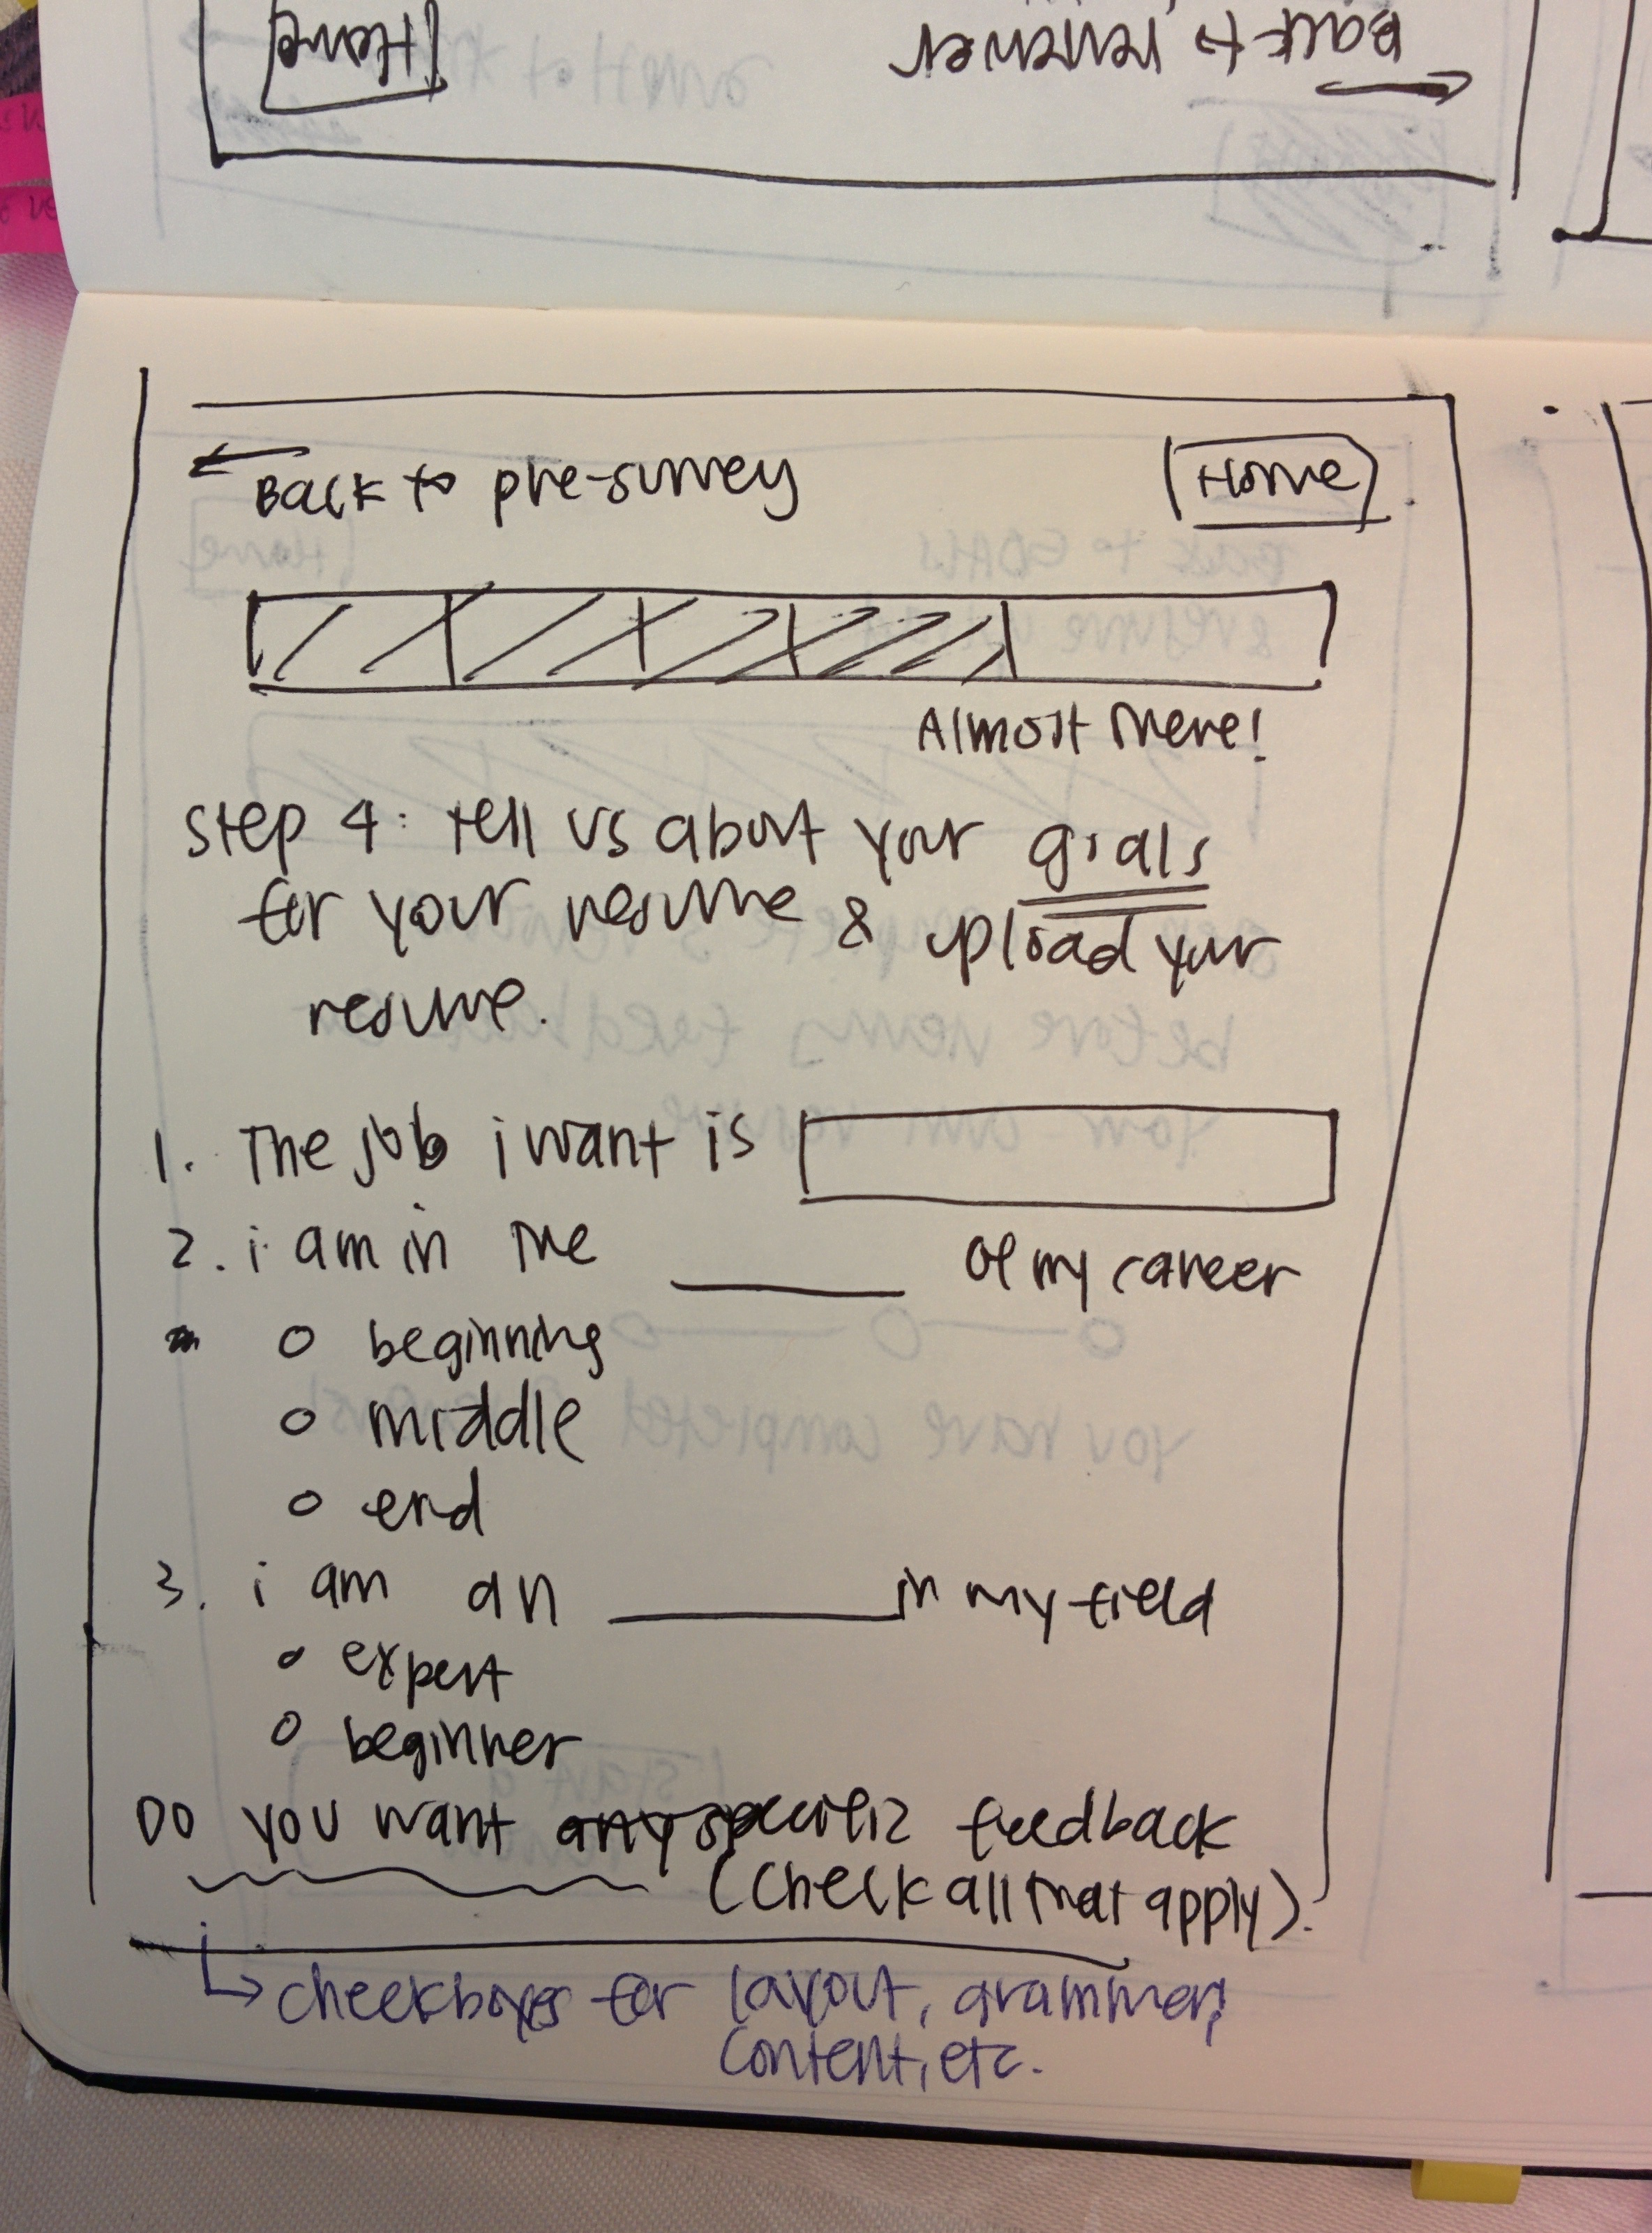 Home
Back to reviewer
← Back to pre-survey
Home
Almost there!
Step 4: tell us about your goals
for your resume & upload your
resume.
1. The job i want is
2. i am in the ______ of my career
o beginning
o middle
o end
3. i am an ______ in my field
o expert
o beginner
Do you want any specific feedback
(check all that apply).
↳ checkboxes for layout, grammer,
content, etc.